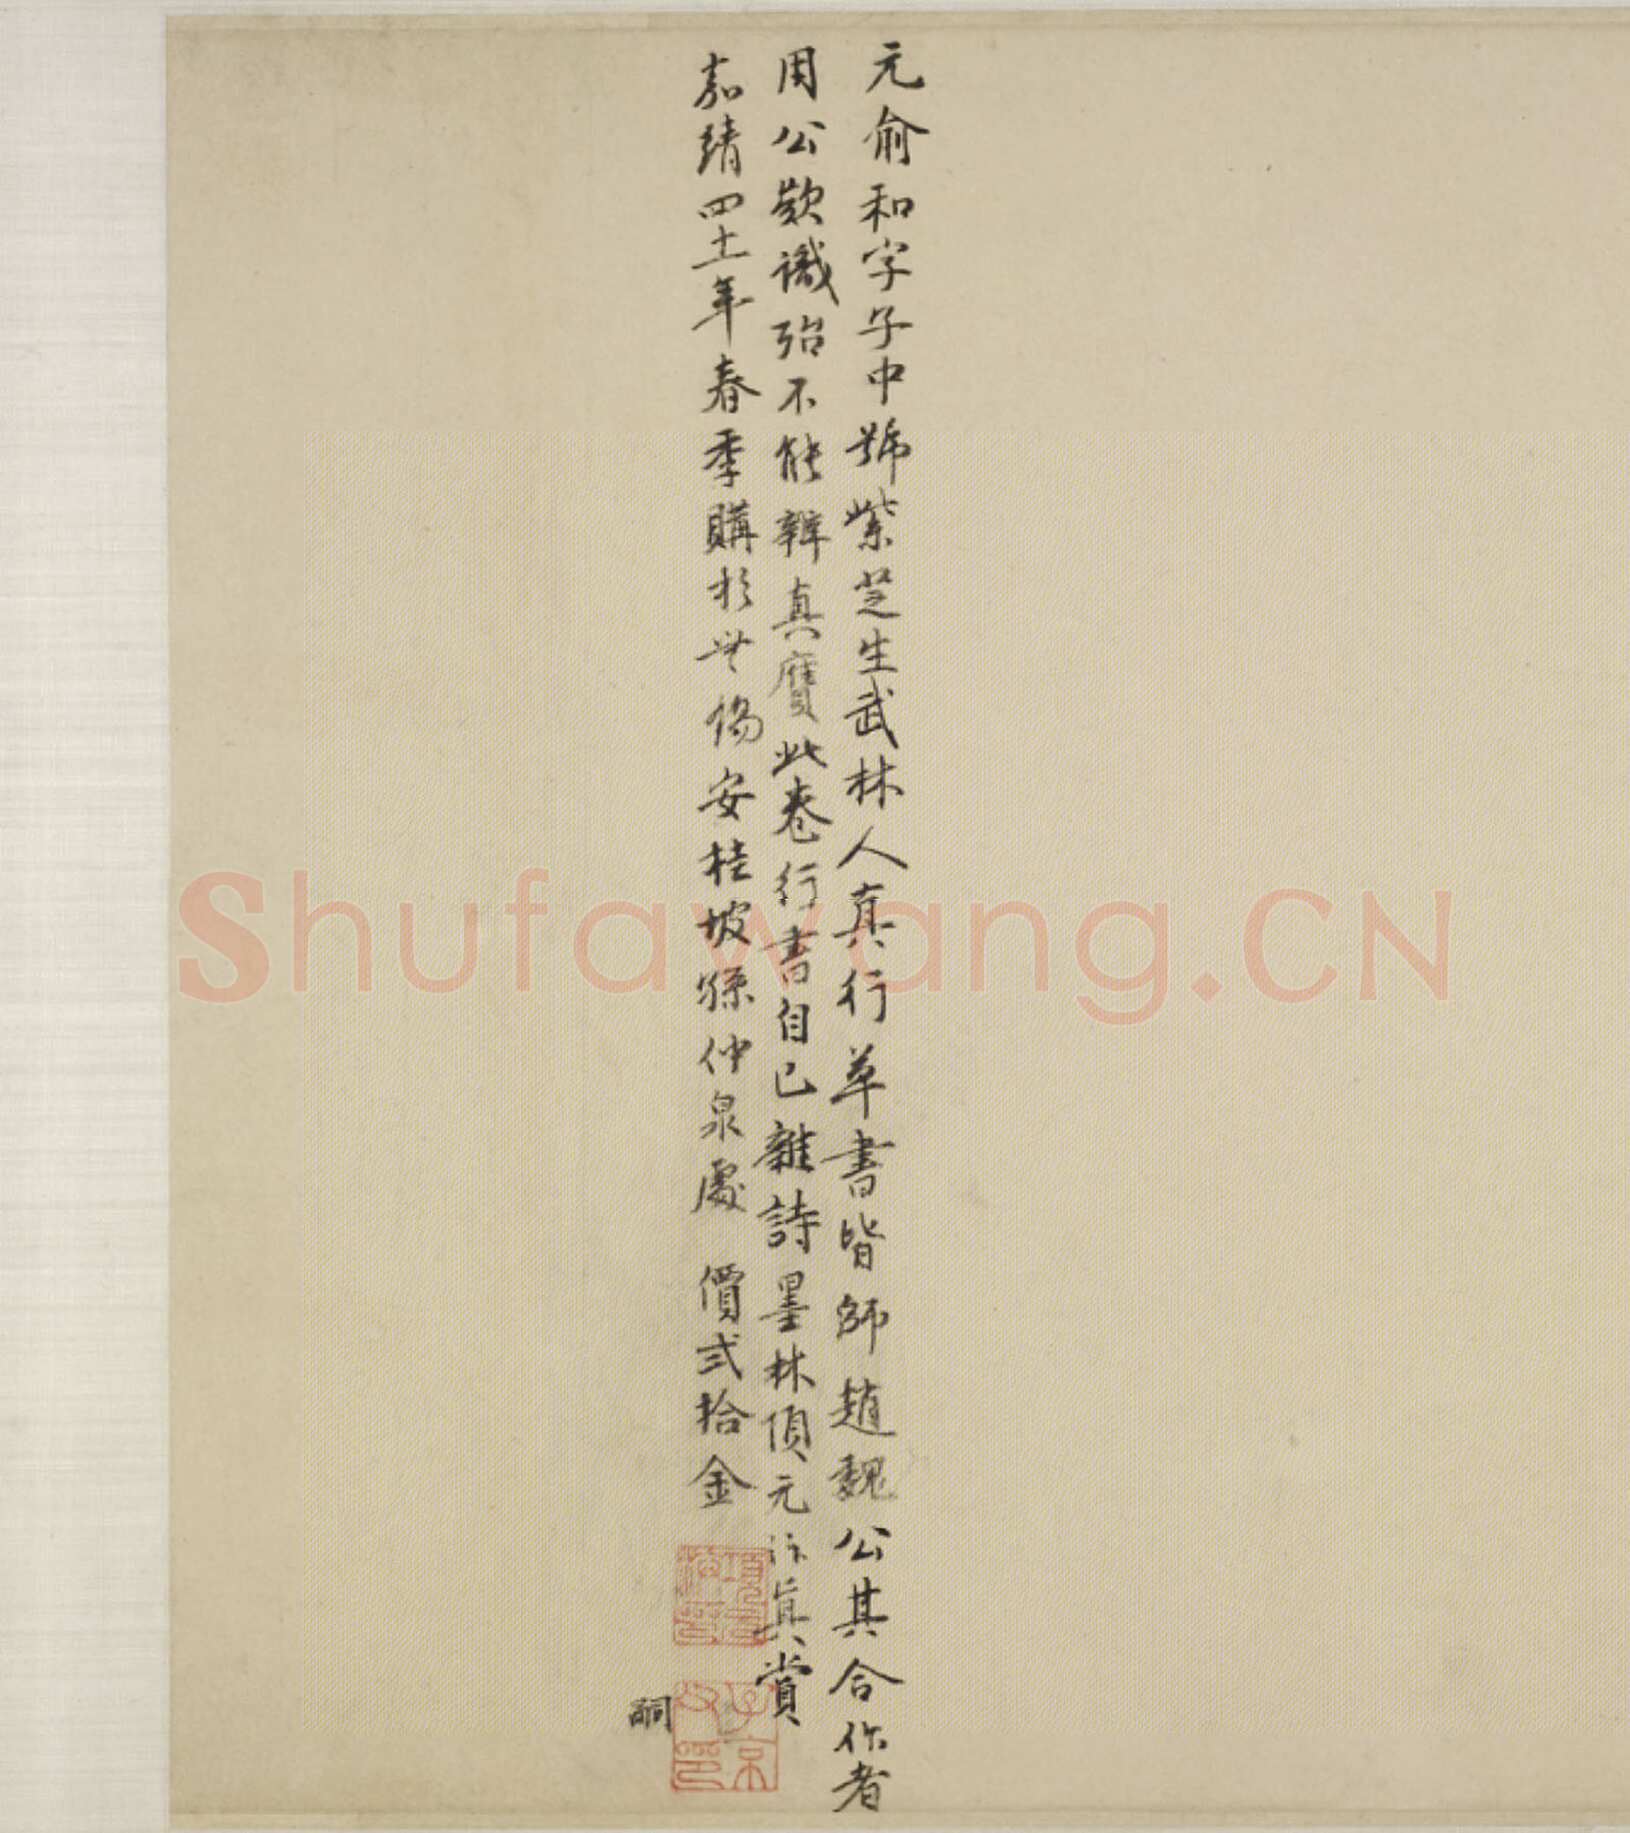 元俞和字子中號紫芝生武林人真行草書皆師趙魏公其合作者
用公欵識殆不能辨真贋此卷行書自己雜詩墨林項元汴真賞
嘉靖四十一年春季購於無錫安桂坡孫仲泉處 價弍拾金
項元汴印
子京父印
嗣
Shufawang.CN